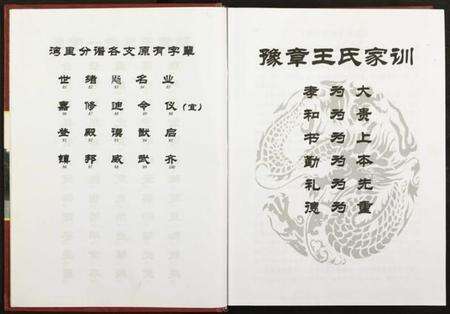 湾里分谱各支原有字辈
世 绪 飏 名 业
嘉 修 迪 令 仪（宜）
登 殿 谟 猷 启
镇 邦 威 武 齐
豫章王氏家训
孝 为 大
和 为 贵
书 为 上
勤 为 本
礼 为 先
德 为 重